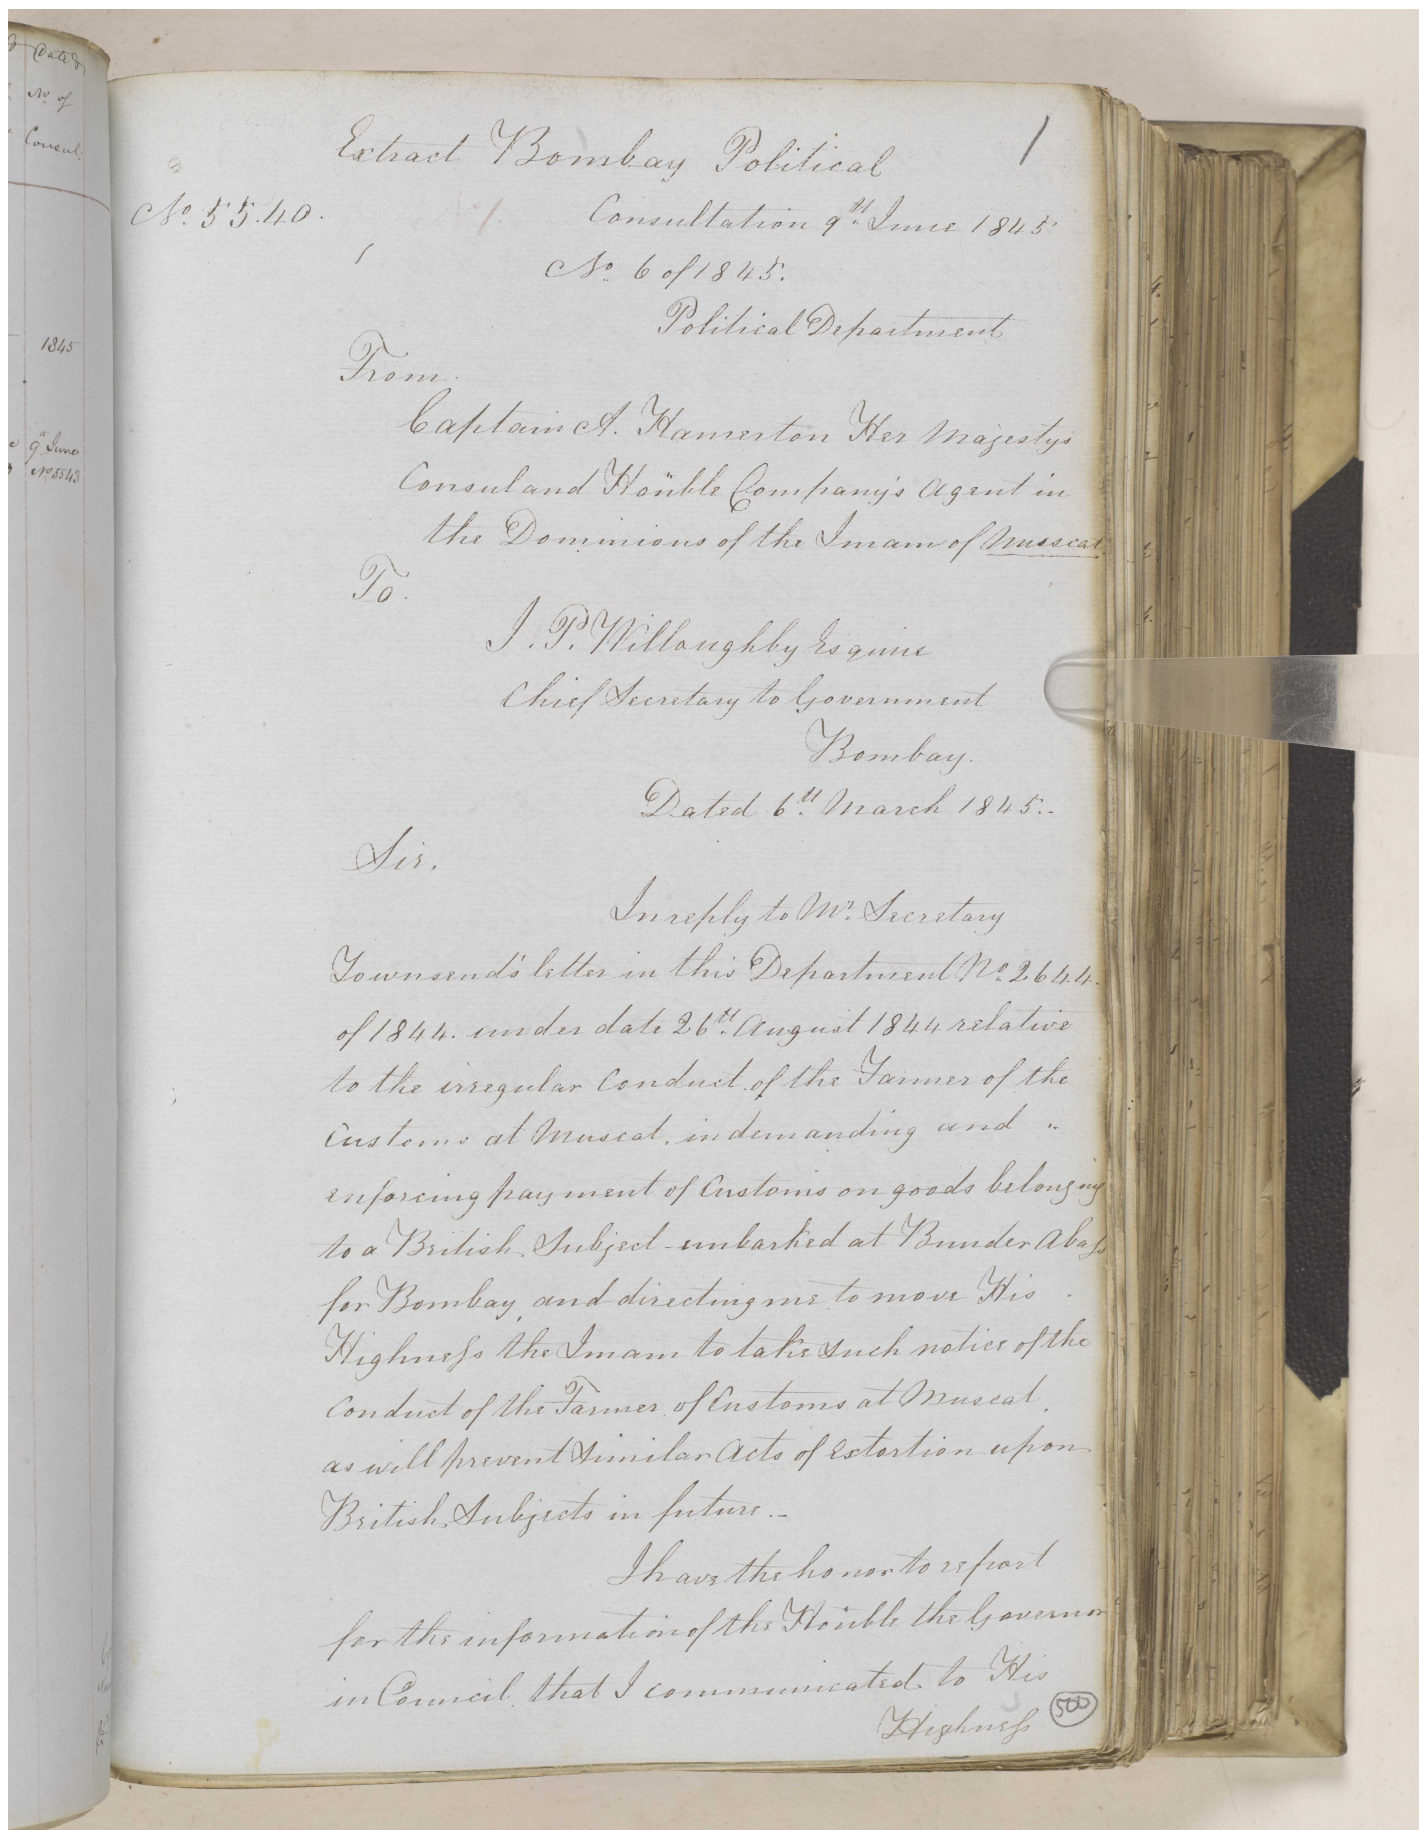 Dated
No of
Consul:
1845
9th June
No 5543
1
Extract Bombay Political
No. 5540.
Consultation 9th June 1845
No. 6 of 1845.
Political Department
From
Captain A. Hamerton Her Majestys
Consul and Honble Company's Agent in
the Dominions of the Imam of Musscat
To.
J. P. Willoughby Esquire
Chief Secretary to Government
Bombay.
Dated 6th March 1845.-
Sir.
In reply to Mr. Secretary
Townsend's letter in this Department No. 2644.
of 1844. under date 26th August 1844 relative
to the irregular Conduct of the Farmer of the
Customs at Muscat, in demanding and "
enforcing payment of Customs on goods belonging
to a British Subject - embarked at Bunder Abass
for Bombay, and directing me to move His
Highness the Imam to take such notice of the
Conduct of the Farmer of Customs at Muscat,
as will prevent Similar Acts of Extortion upon
British Subjects in future.-
I have the honor to report
for the information of the Honble the Governor
in Council, that I communicated to His
Highness
500